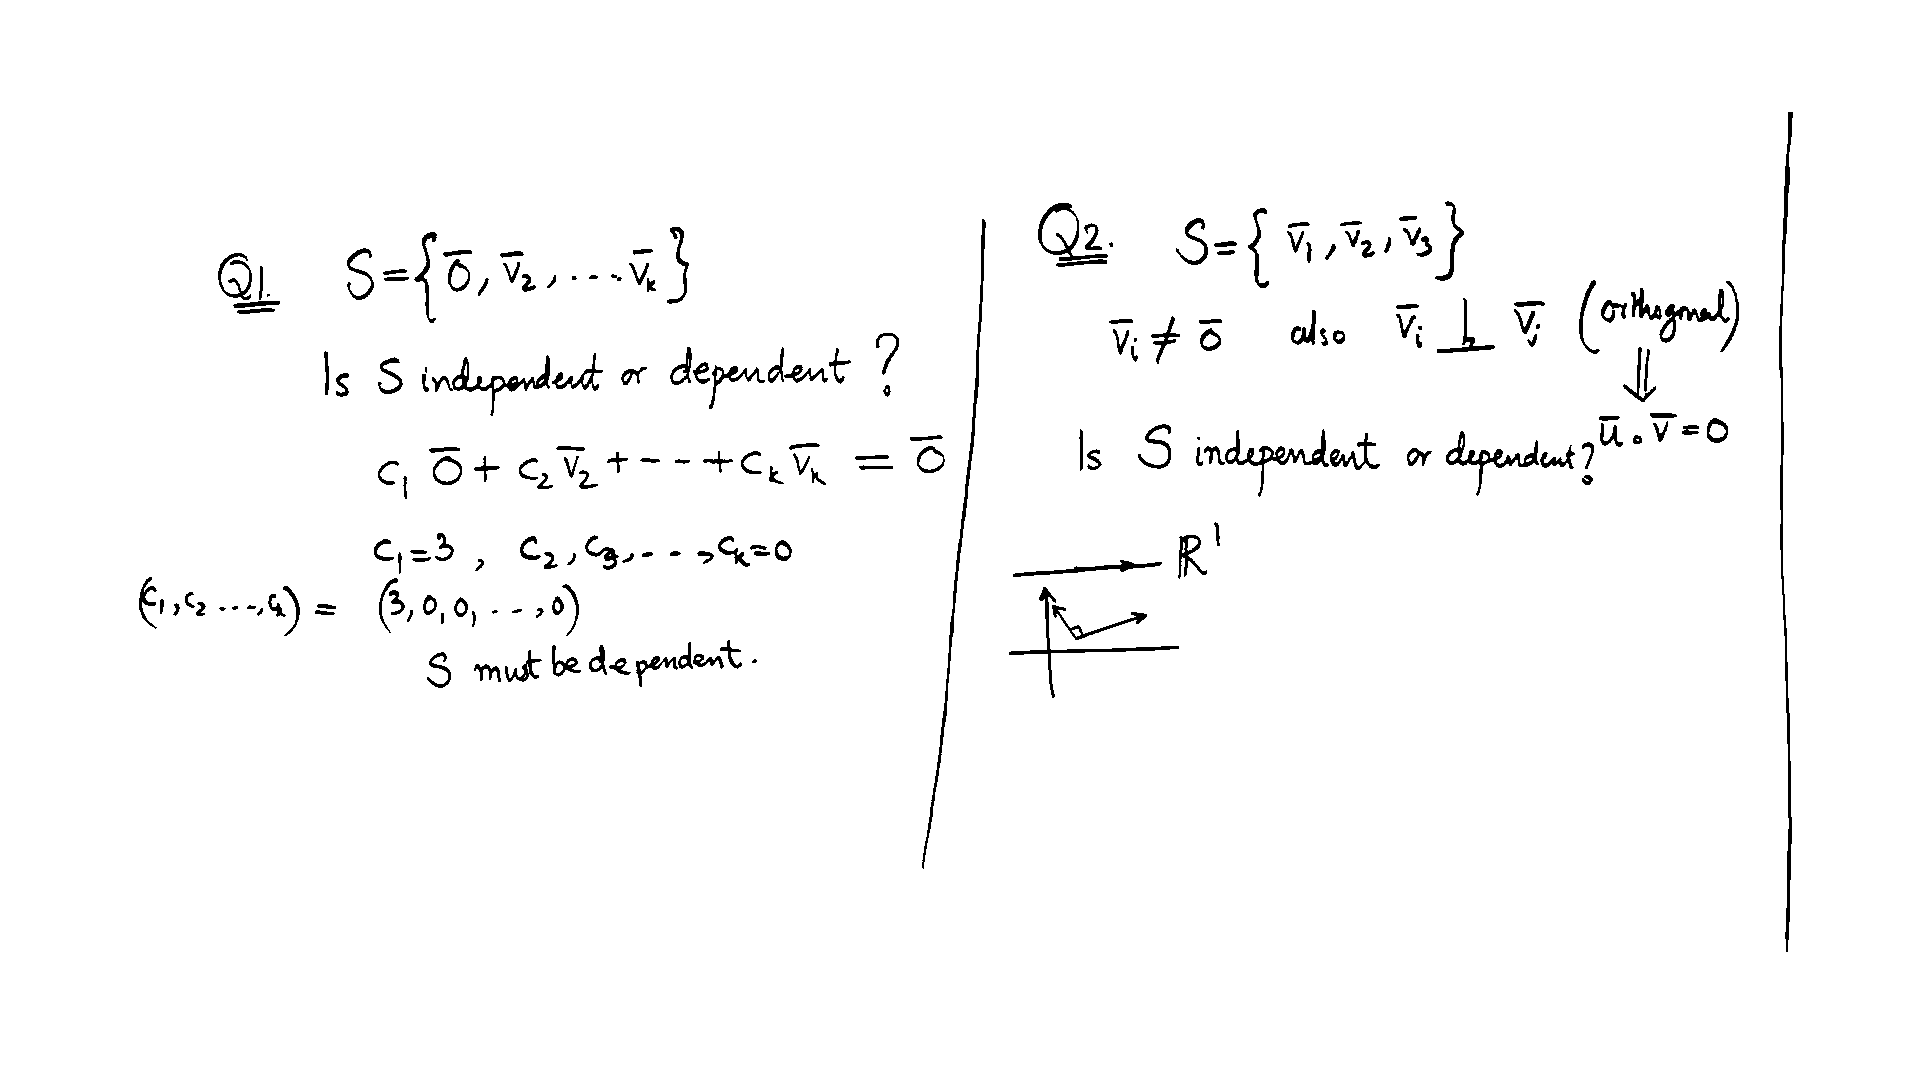 Q1. S={0̅, v̅₂, ... v̅ₖ}
Is S independent or dependent ?
c₁ 0̅ + c₂ v̅₂ + - - - + cₖ v̅ₖ = 0̅
c₁=3 , c₂, c₃, - - - , cₖ=0
(c₁, c₂ ..., cₖ) = (3, 0, 0, - - -, 0)
S must be dependent.
Q2. S={ v̅₁, v̅₂, v̅₃}
v̅ᵢ ≠ 0̅ also v̅ᵢ ⊥ v̅ⱼ (orthogonal)
⇓
Is S independent or dependent? u̅ . v̅ = 0
ℝ¹